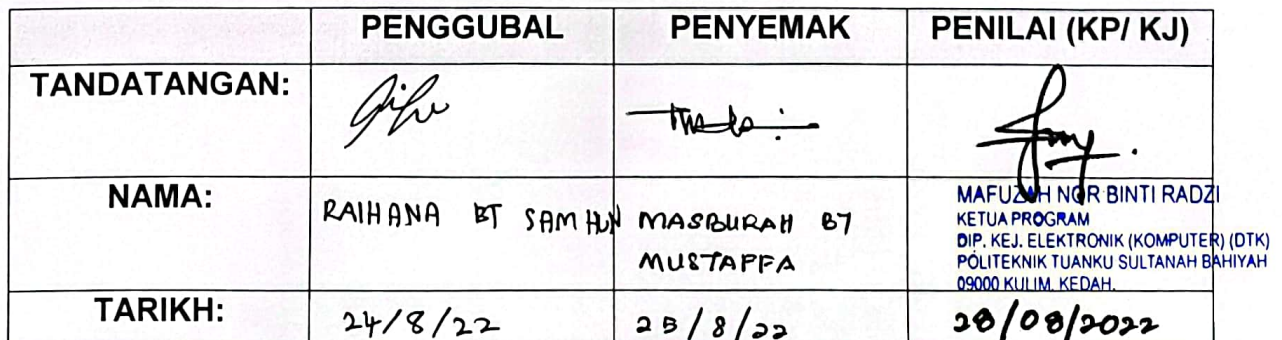 PENGGUBAL PENYEMAK PENILAI (KP/ KJ)
TANDATANGAN:
NAMA: RAIHANA BT SAMHUN MASBURAH BT
MUSTAFFA
MAFUZAH NOR BINTI RADZI
KETUA PROGRAM
DIP. KEJ. ELEKTRONIK (KOMPUTER) (DTK)
POLITEKNIK TUANKU SULTANAH BAHIYAH
09000 KULIM, KEDAH.
TARIKH: 24/8/22 25/8/22 28/08/2022